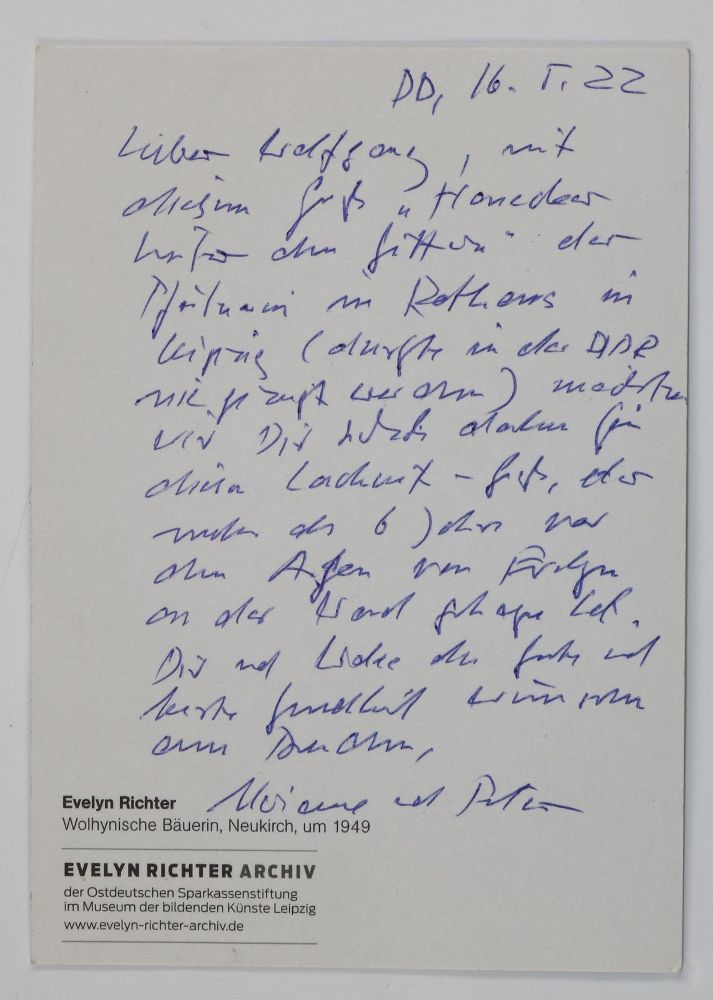 DD, 16. I. 22
Lieber Wolfgang, mit
diesem Gruß „Honecker
hinter den Gittern" der
in Rathaus in
Leipzig (durfte in der DDR
nie gezeigt werden) möchten
wir Dir danken für
diesen Lachnit-Gruß, der
mehr als 6 Jahre vor
den Augen von Evelyn
an der Wand hat.
Dir und alles Gute und
beste Gesundheit wünschen
aus Dresden,
und Peter
Evelyn Richter
Wolhynische Bäuerin, Neukirch, um 1949
EVELYN RICHTER ARCHIV
der Ostdeutschen Sparkassenstiftung
im Museum der bildenden Künste Leipzig
www.evelyn-richter-archiv.de